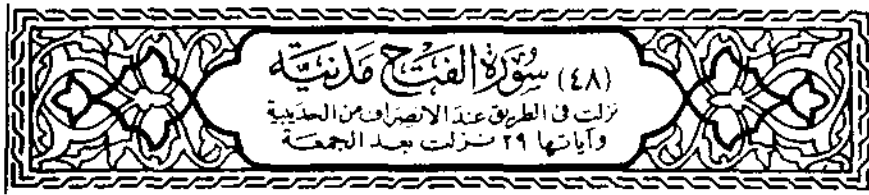 (٤٨) سُورَةُ الفَتْحِ مَدَنِيَّة
نزلت في الطريق عند الانصراف من الحديبية
وآياتها ٢٩ نزلت بعد الجمعة